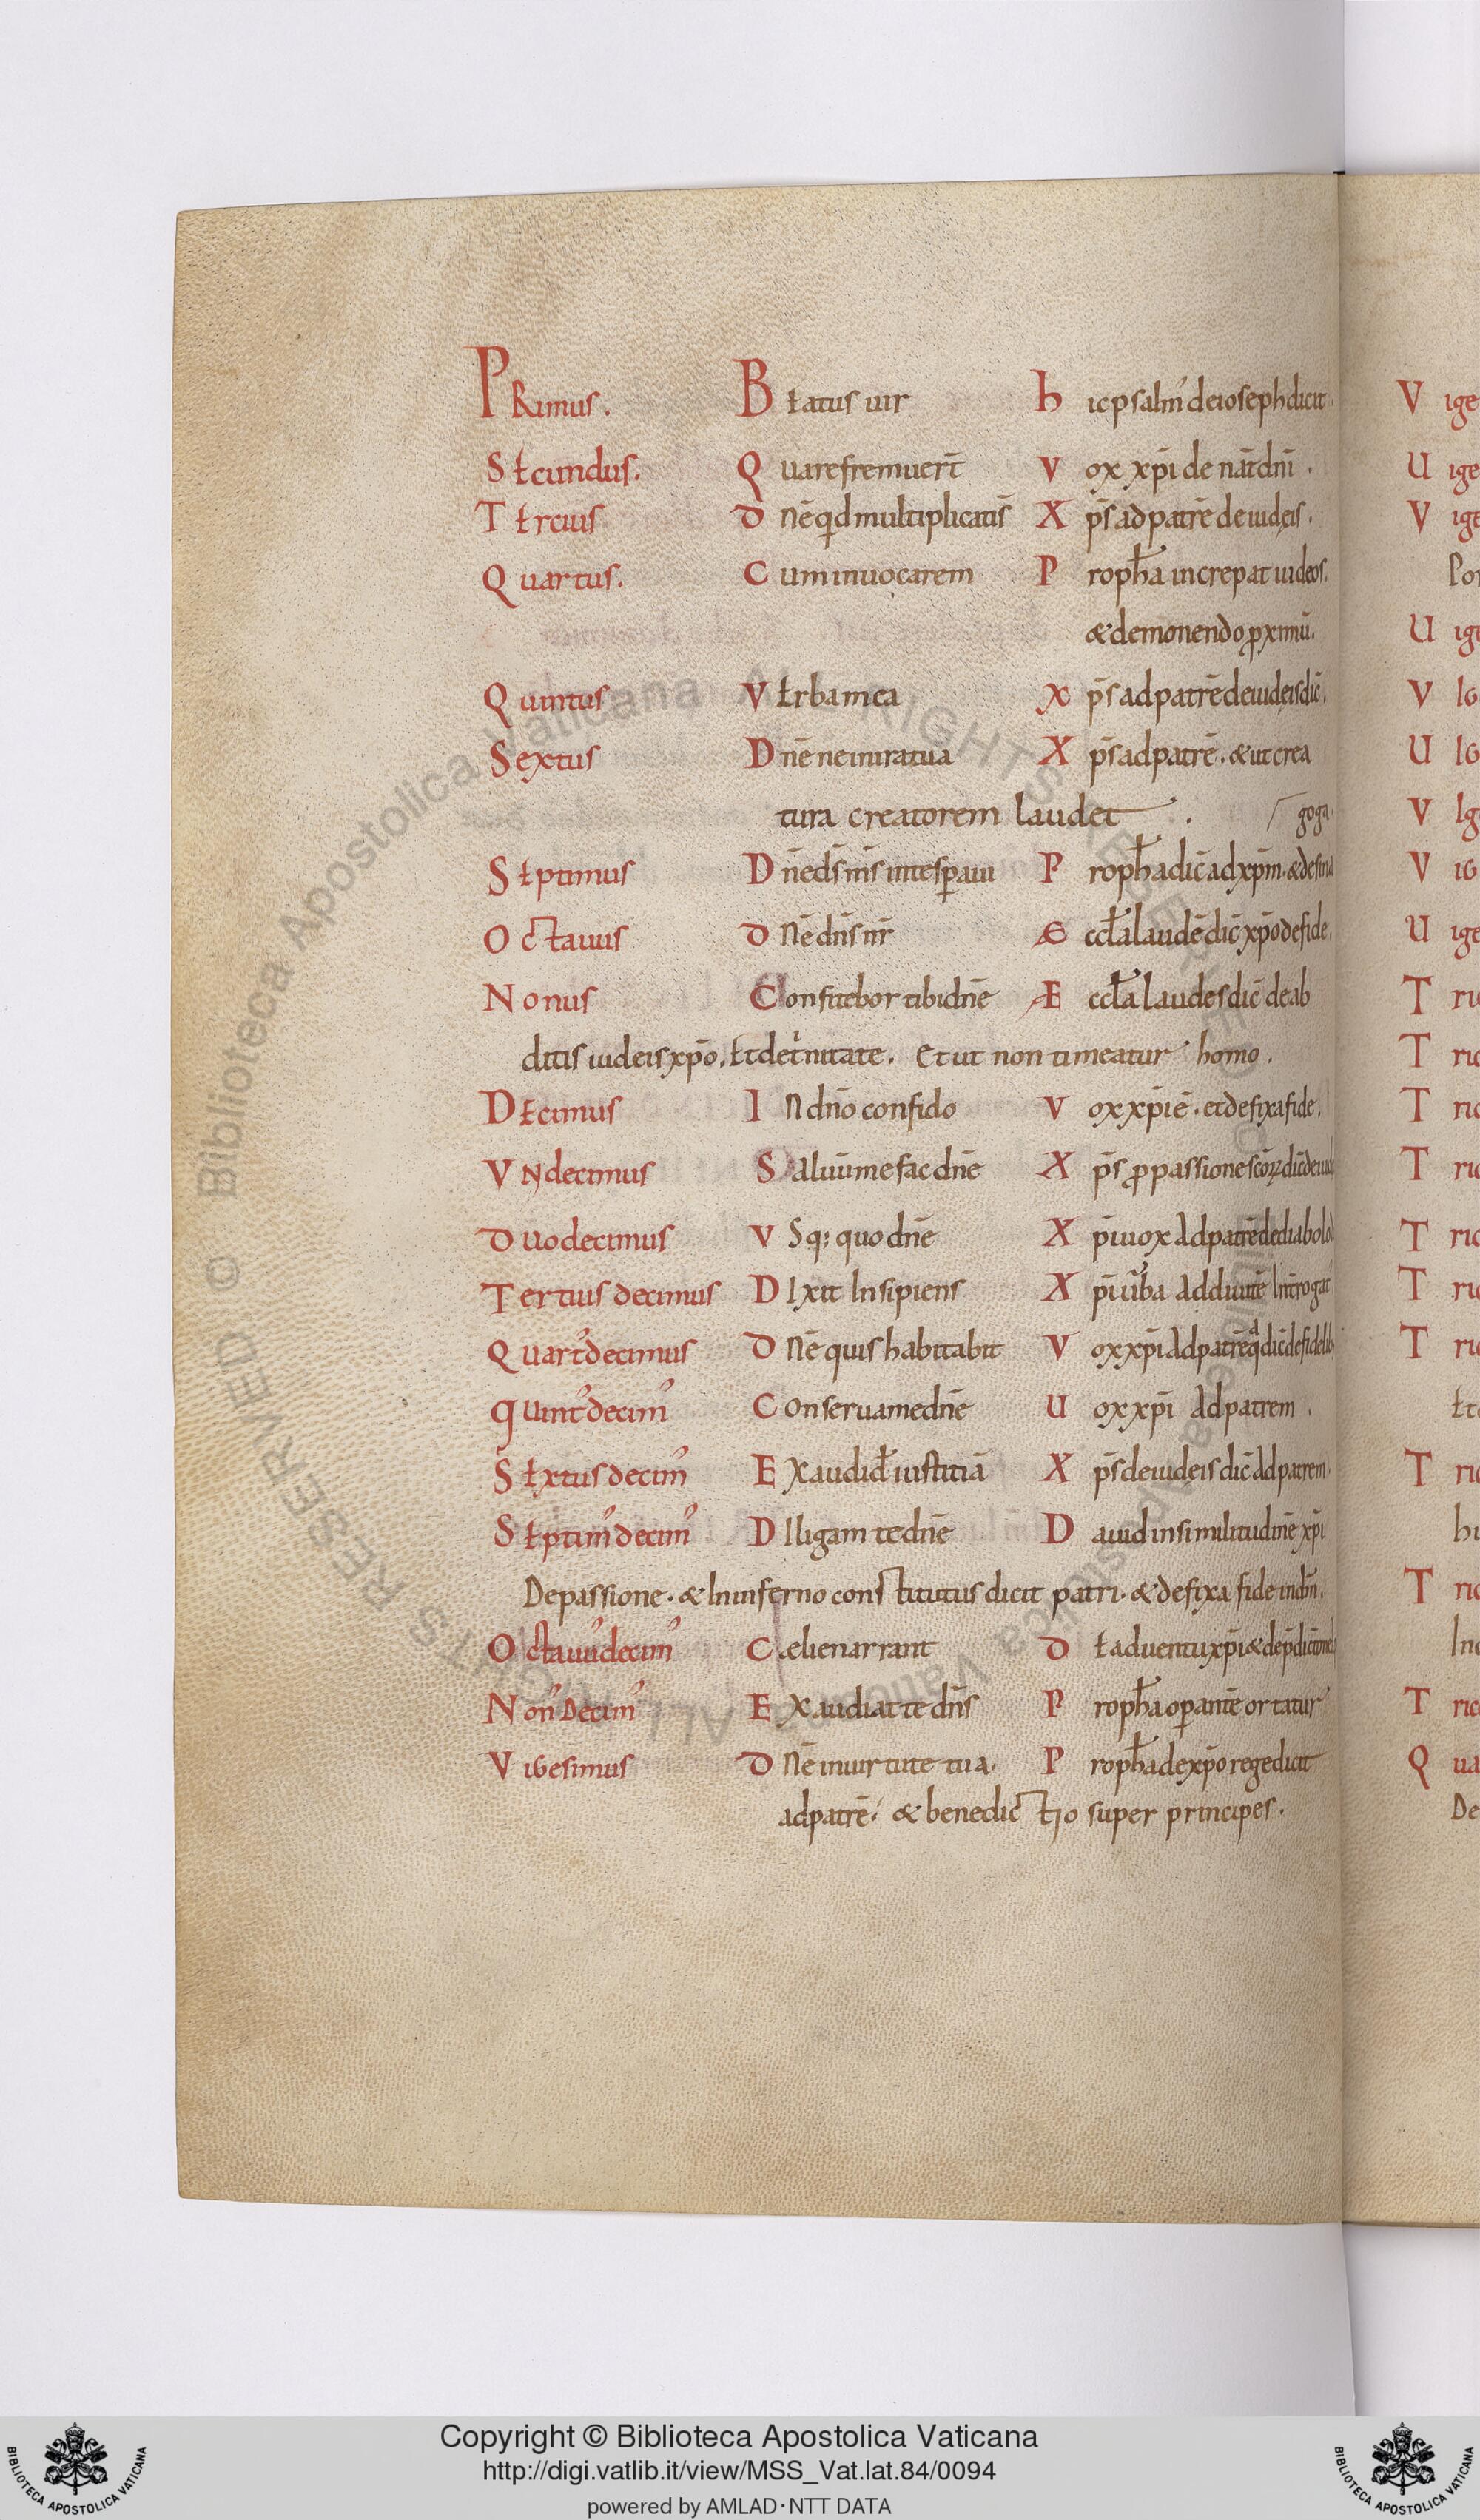 PRimus. Beatus uir hic psalm' de ioseph dicit.
Secundus. Quare fremuer̄t Vox xp̄i de nāt dn̄i.
Tercius Dn̄e qd multiplicatis̄ Xp̄s ad patrē de iudęis.
Quartus. Cum inuocarem Propħa increpat iudeos.
& de monendo ꝓximū.
Quintus Verba mea Xp̄s ad patrē de iudeis dic̄.
Sextus Dn̄e ne in ira tua Xp̄s ad patrē. & ut crea
tura creatorem laudet. goga.
Septimus Dn̄e ds̄ ms̄ in te sꝑaui Propħa dic̄ ad xp̄m. & de sina
Octauus Dn̄e dn̄s nr̄ Eccła laudē dic̄ xp̄o de fide.
Nonus Confitebor tibi dn̄e Æccła laudes dic̄ de ab
ditis iudeis xp̄o. Et de t'nitate. Et ut non timeatur homo.
Decimus In dn̄o confido Vox xp̄i ē. et de fixa fide.
Vndecimus Saluū me fac dn̄e Xp̄s ꝓ passione scōꝝ dic̄ de iude
Duodecimus Vsq; quo dn̄e Xp̄i uox ad patrē de diabolo
Tertius decimus Dixit Insipiens Xp̄i uba ad diuitē Introgat
Quart' decimus Dn̄e quis habitabit Vox xp̄i ad patrē q dic̄ de fidelib
Quint' decim' Conserua me dn̄e Uox xp̄i ad patrem.
Sextus decim' Exaudi d̄ iustitiā Xp̄s de iudeis dic̄ ad patrem.
Septim' decim' Diligam te dn̄e Dauid in similitudinē xp̄i
De passione. & In inferno constitutus dicit patri. & de fixa fide in dn̄m.
Octauu' decim' Cæli enarrant De aduentu xp̄i & de p̄dicatione
Non' Decim' Exaudiat te dn̄s Propħa oꝑantē ortatur
Vigesimus Dn̄e in uirtute tua. Propħa de xp̄o rege dicit
ad patrē. & benedictio super principes.
Copyright © Biblioteca Apostolica Vaticana
http://digi.vatlib.it/view/MSS_Vat.lat.84/0094
powered by AMLAD·NTT DATA